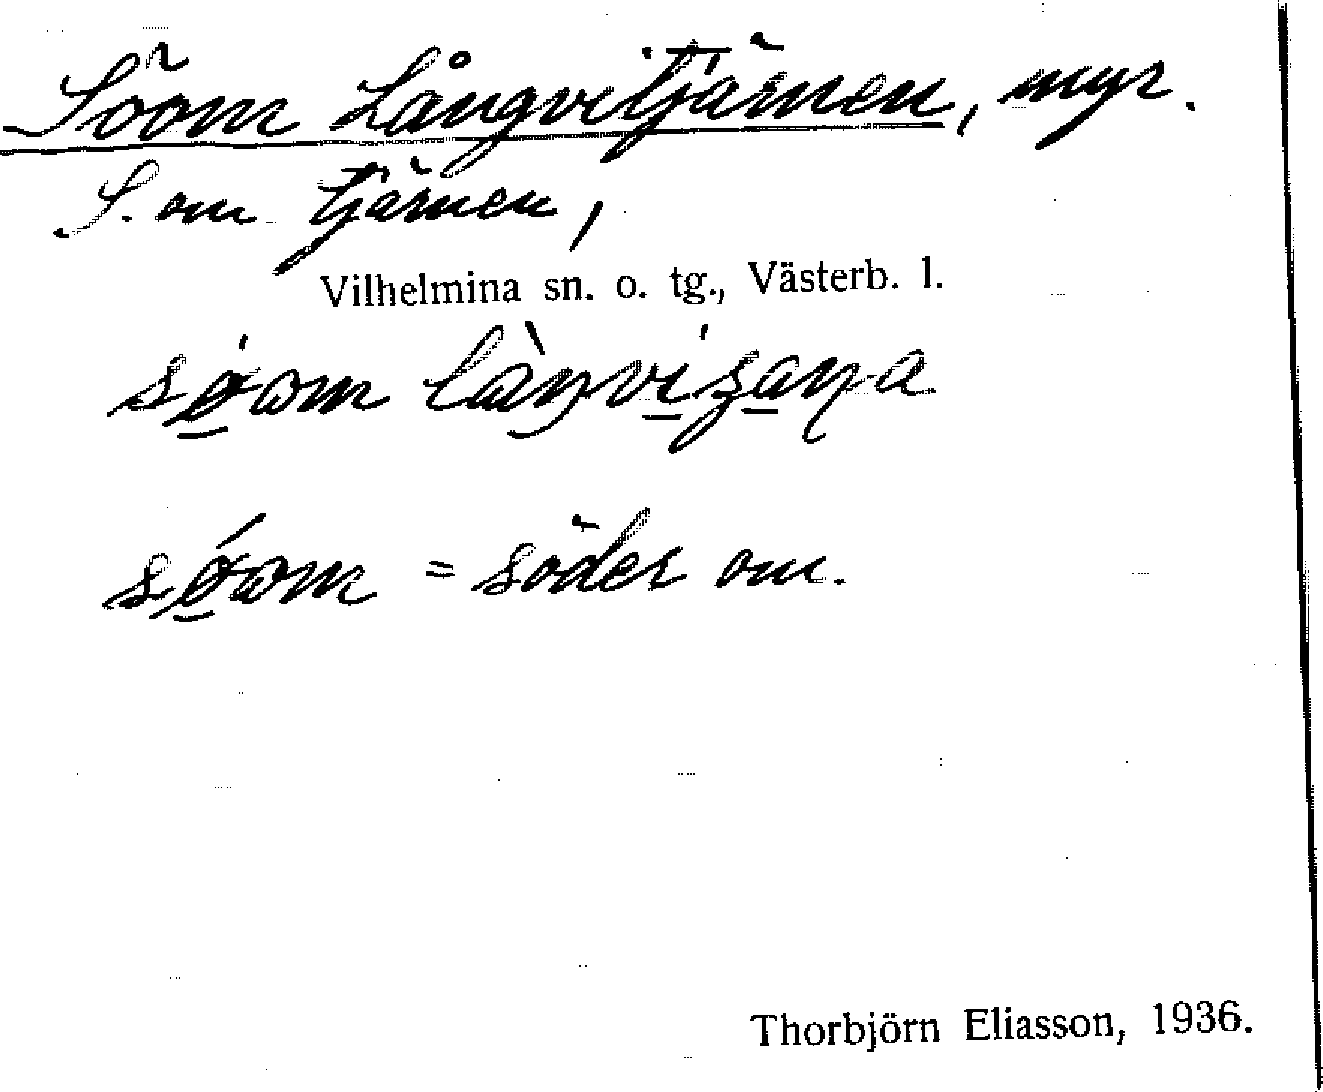 Söom Långvitjärnen, myr.
S. om tjärnen,
Vilhelmina sn. o. tg., Västerb. l.
søom
søom = söder om.
Thorbjörn Eliasson, 1936.